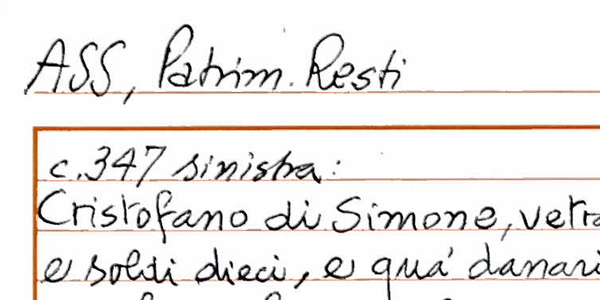 ASS, Patrim. Resti
c. 347 sinistra:
Cristofano di Simone, vetra
e soldi dieci, e qua' danari